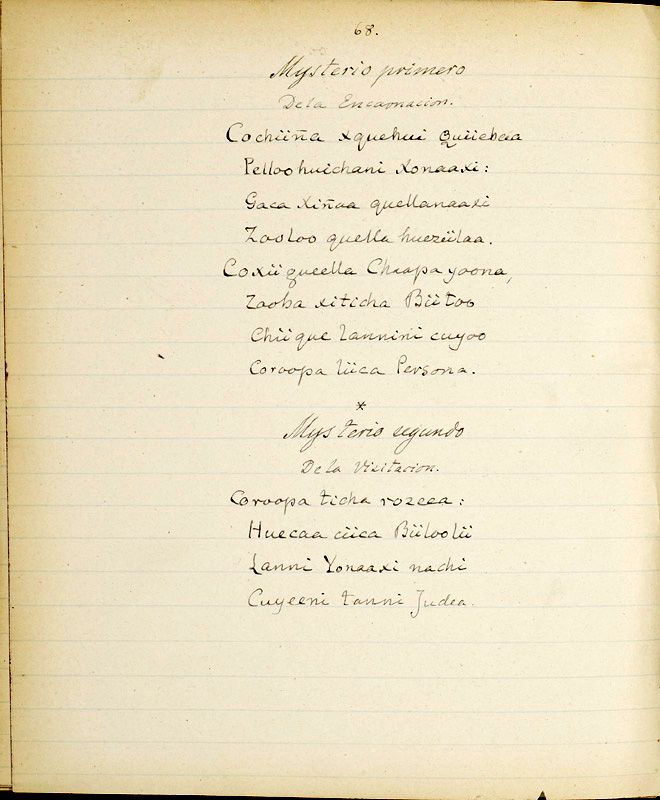 68.
Mysterio primero
De la Encarnacion.
Cochiiña xquehui Quiiebaa
Pelloohuichani Xonaaxi:
Gaca xiñaa quellanaaxi
Zooloo quella huezüilaa.
Coxii queella Chaapa yoona,
Zaoba xiticha Biitoo
Chiique lannini cuyoo
Coroopa liica Persona.
*
Mysterio segundo
De la Visitacion.
Coroopa ticha rozeea:
Huecaa ciica Biiloolii
Lanni Yonaaxi nachi
Cuyeeni tanni Judea.